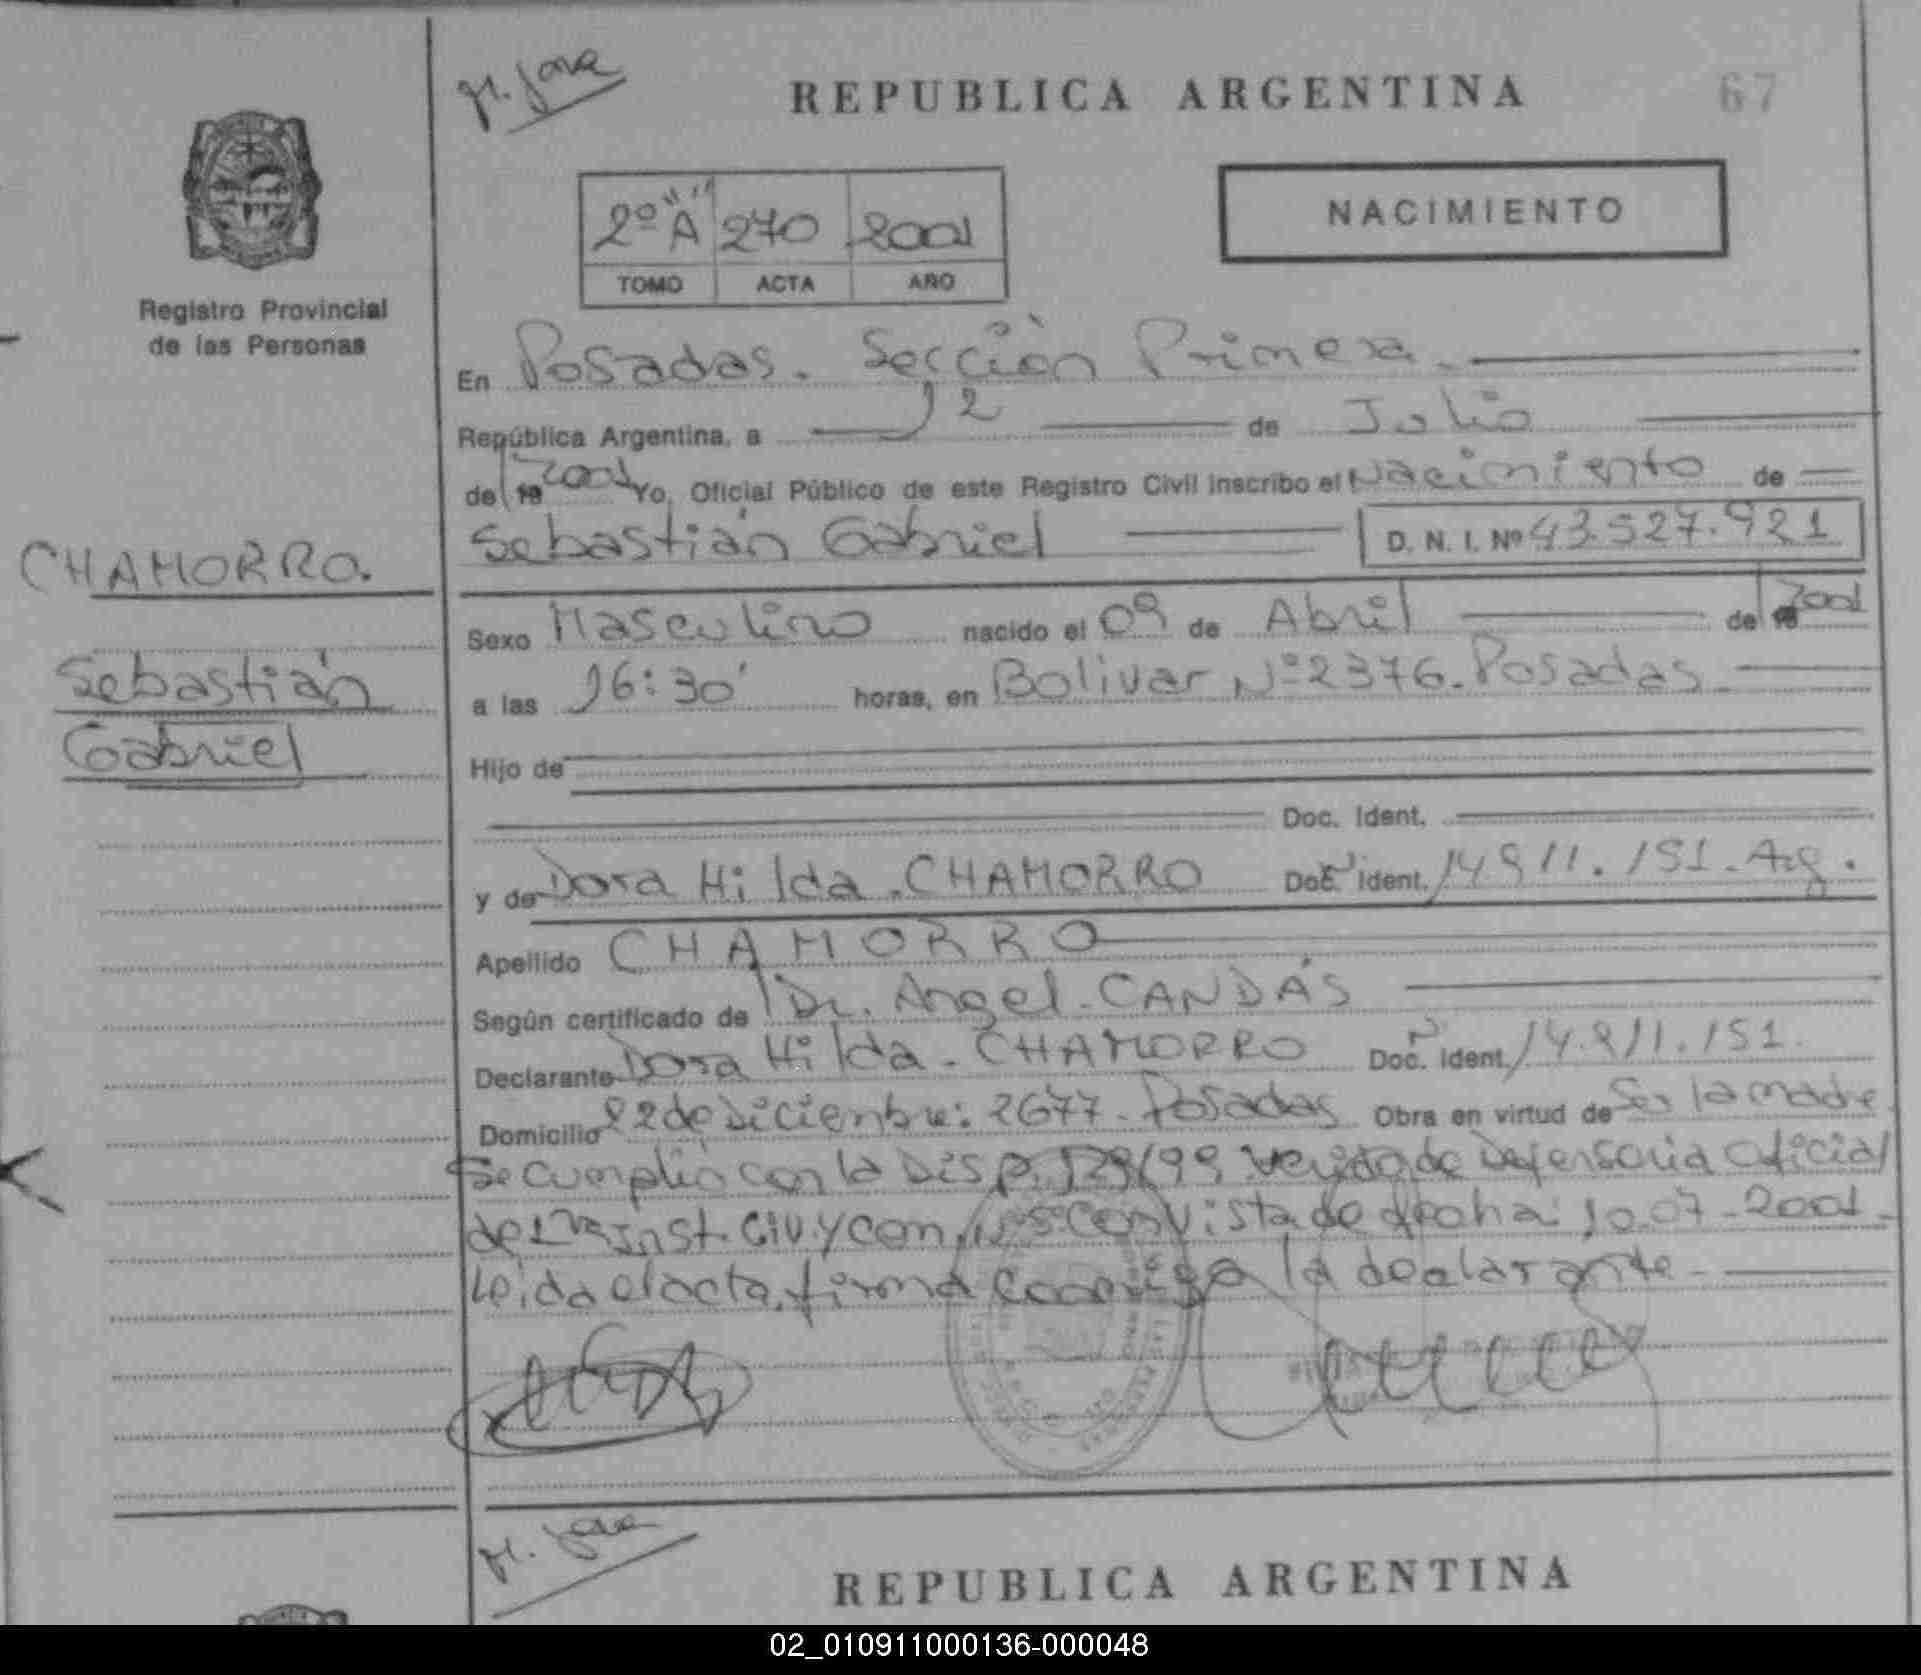 M. Jara
REPUBLICA ARGENTINA
67
2º "A" 270 2001
TOMO ACTA AÑO
NACIMIENTO
Registro Provincial
de las Personas
En Posadas. Sección Primera.
República Argentina, a 12 de Julio
de 19 2001 Yo, Oficial Público de este Registro Civil inscribo el Nacimiento de
Sebastián Gabriel D. N. I. Nº 43.527.921
CHAMORRO.
Sebastián
Gabriel
Sexo Masculino nacido el 09 de Abril de 19 2001
a las 16:30' horas, en Bolivar Nº 2376. Posadas.
Hijo de
Doc. Ident.
y de Dora Hilda. CHAMORRO Doc. Ident. 14911.151. Arg.
Apellido CHAMORRO
Según certificado de Dr. Angel. CANDÁS
Declarante Dora Hilda. CHAMORRO Doc. Ident. 14.911.151.
Domicilio 22 de Diciembre: 2677. Posadas Obra en virtud de Ser la madre.
Se cumplió con la Disp. 129/99, de Defensoría Oficial
de 1ra Inst. Civ. y Com. Nº 5 Con Vista de fecha: 10.07.2001.
Leida el acta, firma la declarante.
M. Jara
REPUBLICA ARGENTINA
02_010911000136-000048